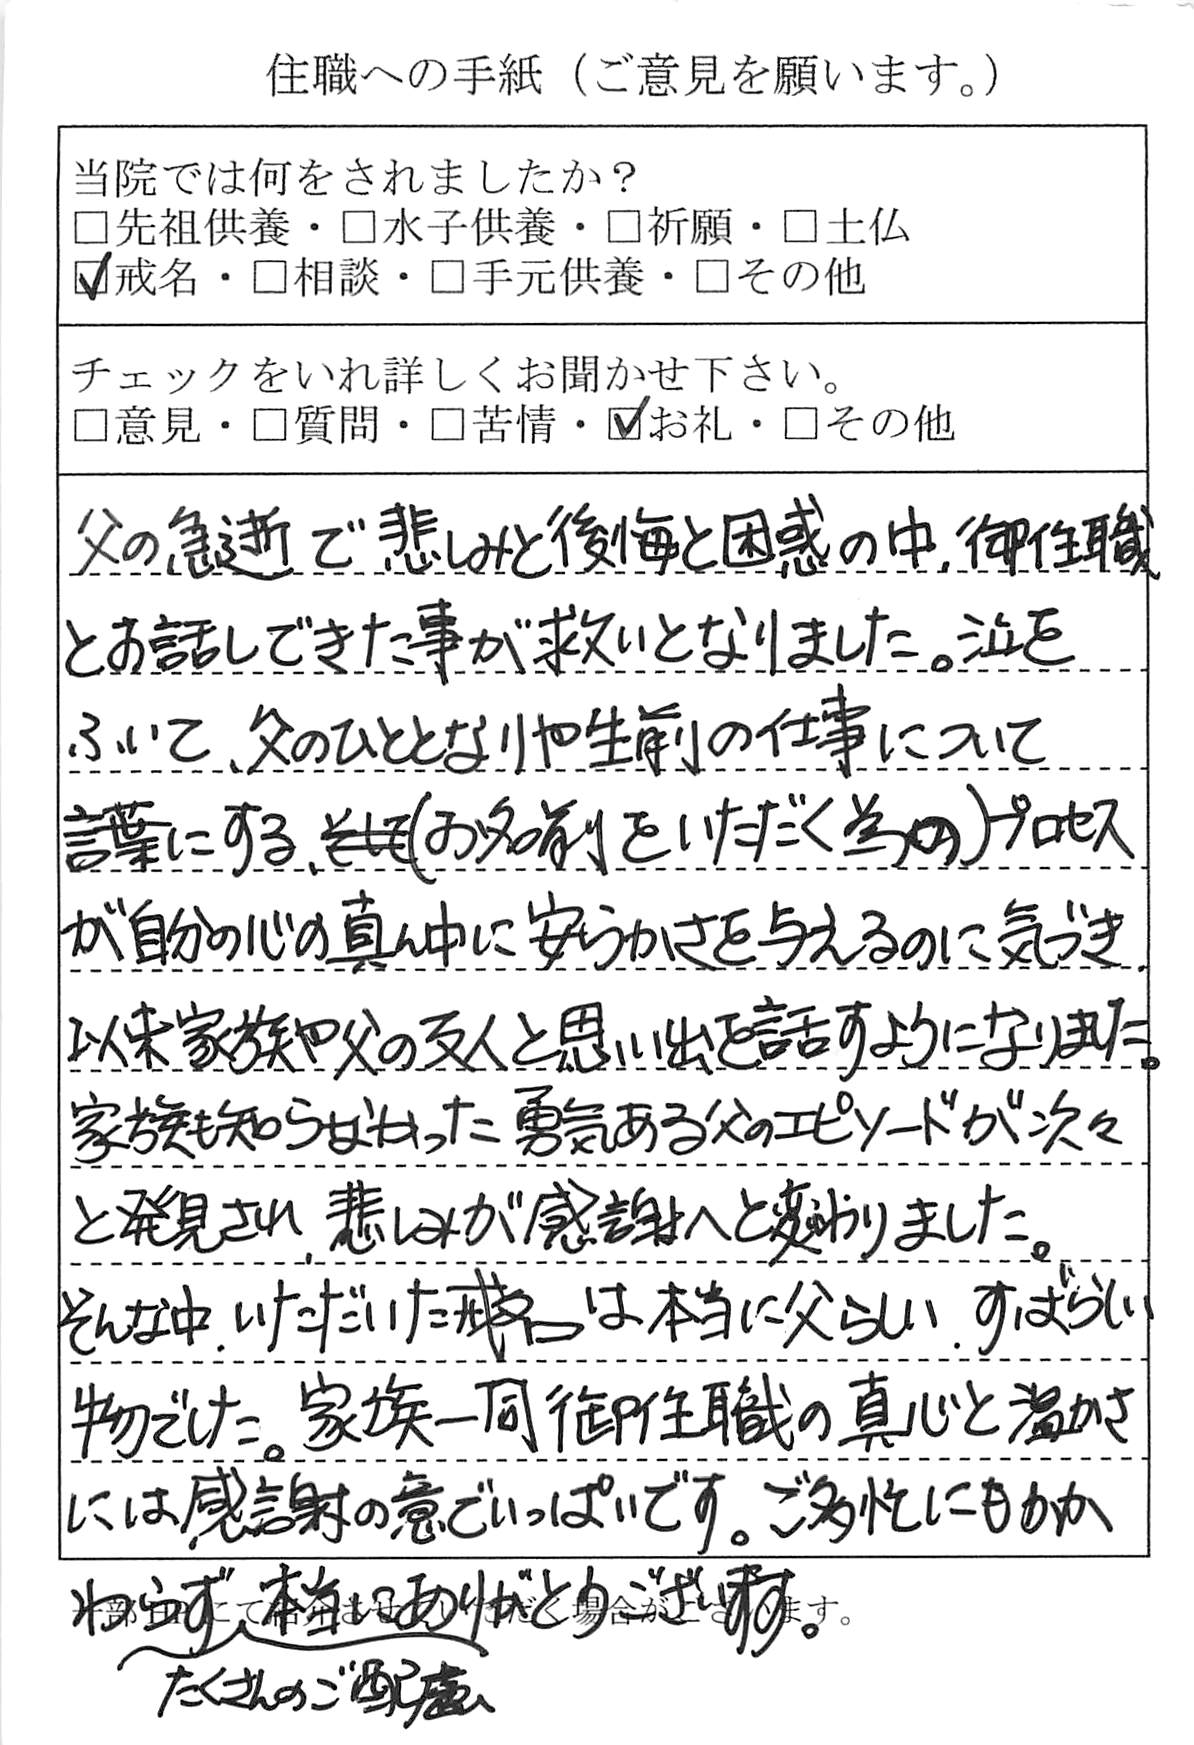 住職への手紙（ご意見を願います。）
当院では何をされましたか？
□先祖供養・□水子供養・□祈願・□土仏
☑戒名・□相談・□手元供養・□その他
チェックをいれ詳しくお聞かせ下さい。
□意見・□質問・□苦情・☑お礼・□その他
父の急逝で悲しみと後悔と困惑の中、御住職
とお話しできた事が救いとなりました。泣を
ふいて、父のひととなりや生前の仕事について
言葉にする、そして(お名前をいただく為の)プロセス
が自分の心の真ん中に安らかさを与えるのに気づき、
以来家族や父の友人と思い出を話すようになりました。
家族も知らなかった勇気ある父のエピソードが次々
と発見され、悲しみが感謝へと変わりました。
そんな中、いただいた戒名は本当に父らしい、すばらしい
物でした。家族一同御住職の真心と温かさ
には感謝の意でいっぱいです。ご多忙にもかか
わらず、本当にありがとうございます。
たくさんのご配慮、